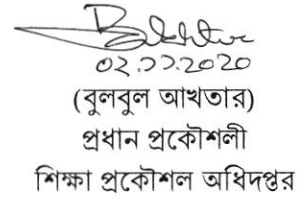 ০২.১১.২০২০
(বুলবুল আখতার)
প্রধান প্রকৌশলী
শিক্ষা প্রকৌশল অধিদপ্তর